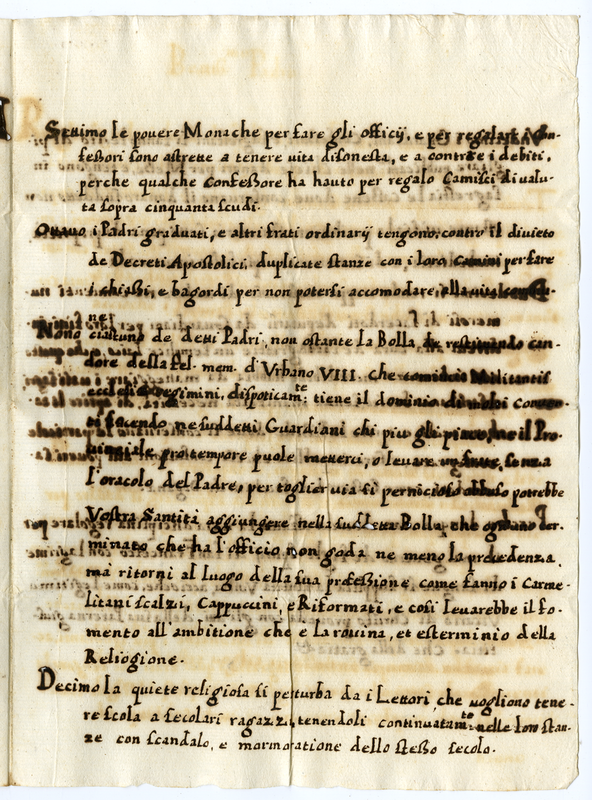 Settimo le pouere Monache per fare gli officij, e per regalare i Con-
fessori sono astrette a tenere uita disonesta, e a contrãe i debiti,
perche qualche Confessore ha hauto per regalo Camisci di ualu-
ta sopra cinquanta scudi.
Ottauo i Padri graduati, e altri frati ordinarij tengono, contro il diuieto
de Decreti Apostolici, duplicate stanze con i loro Camini per fare
e bagordi per non potersi accomodare alla uita
ne.
Nono ciascuno de detti Padri, non ostante la Bolla de
dore della fel. mem. d'Vrbano VIII. che Militantis
ecclesiæ regimini, dispoticamte: tiene il dominio di molti
facendo ne suddetti Guardiani chi piu gli piace, ne il Pro-
uinciale pro tempore puole metterci, o leuare un frate, senza
l'oracolo del Padre, per toglier uia sì pernicioso abbuso potrebbe
Vostra Santità aggiungere nella suddetta Bolla, che ogniuno Ter-
minato che ha l'officio non goda ne meno la precedenza,
mà ritorni al luogo della sua professione, come fanno i Carme-
litani scalzi, Cappuccini, e Riformati, e così leuarebbe il fo-
mento all'ambitione che è la rouina, et esterminio della
Reliogione.
Decimo la quiete religiosa si perturba da i Lettori, che uogliono tene-
re scola a secolari ragazzi, tenendoli continuatamte: nelle loro stan-
ze con scandalo, e mormoratione dello stesso secolo.